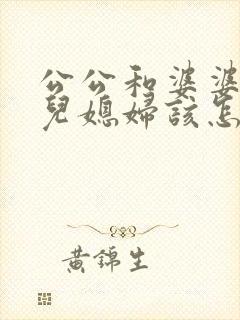 公公和婆婆
兒媳婦該怎
黃錦生